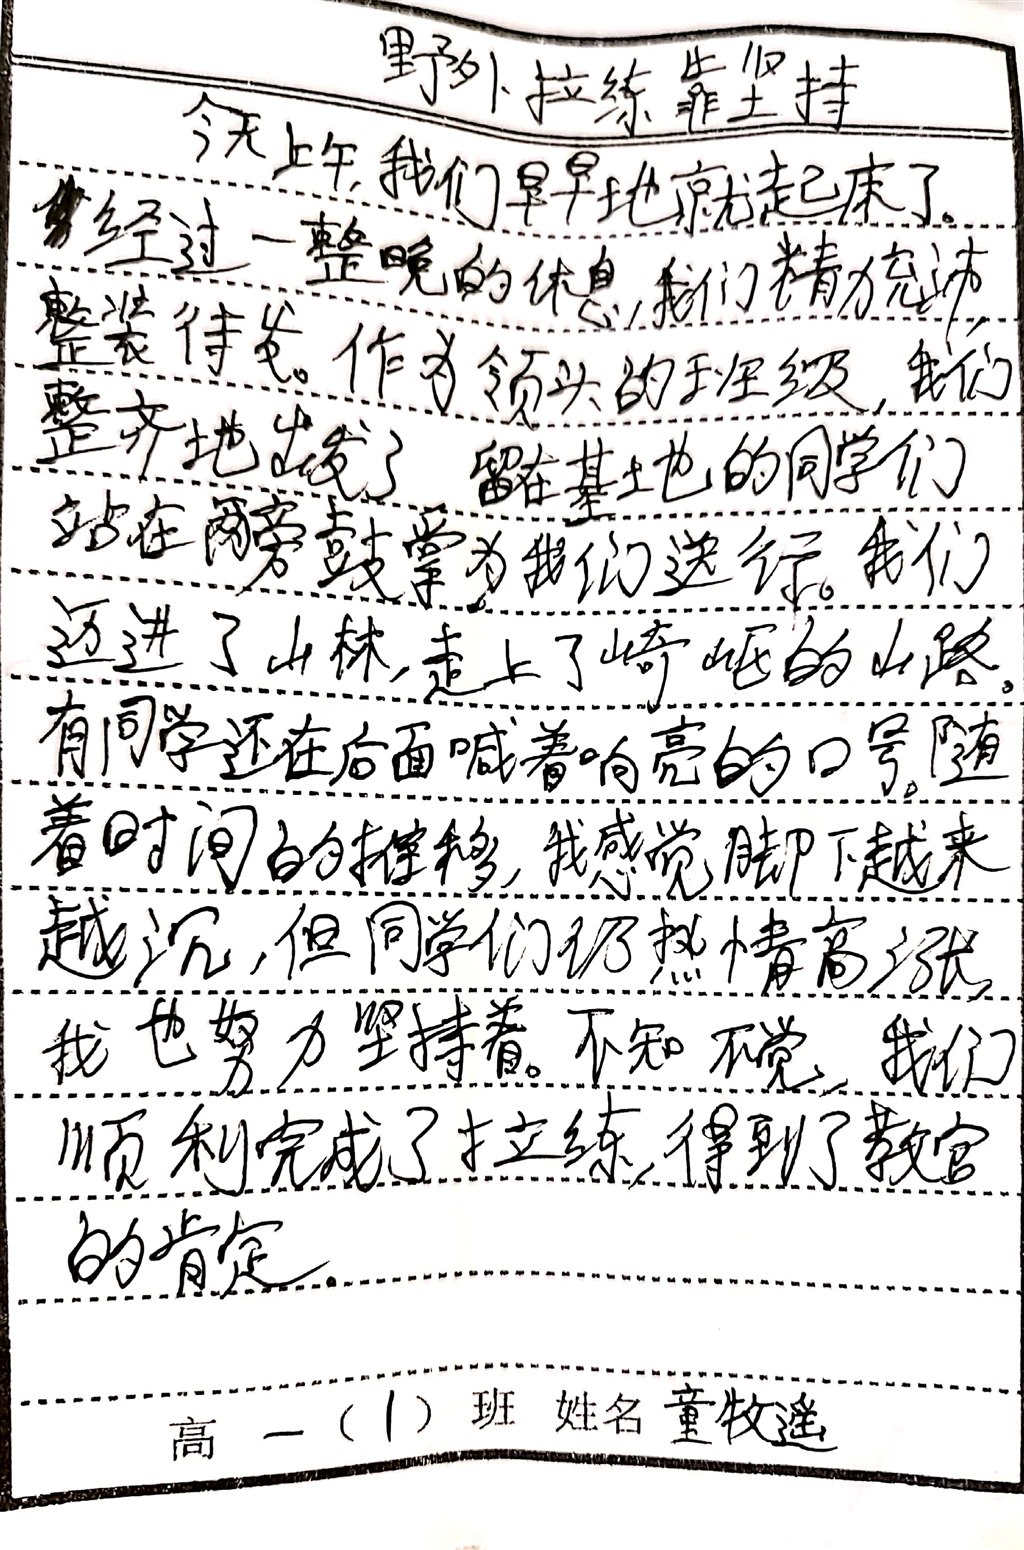 野外拉练靠坚持
今天上午,我们早早地就起床了。
经过一整晚的休息,我们精力充沛,
整装待发。作为领头的班级,我们
整齐地出发了 留在基地的同学们
站在两旁鼓掌为我们送行。我们
迈进了山林,走上了崎岖的山路。
有同学还在后面喊着响亮的口号。随
着时间的推移,我感觉脚下越来
越沉,但同学们仍热情高涨,
我也努力坚持着。不知不觉,我们
顺利完成了拉练,得到了教官
的肯定.
高一(1)班 姓名童牧遥